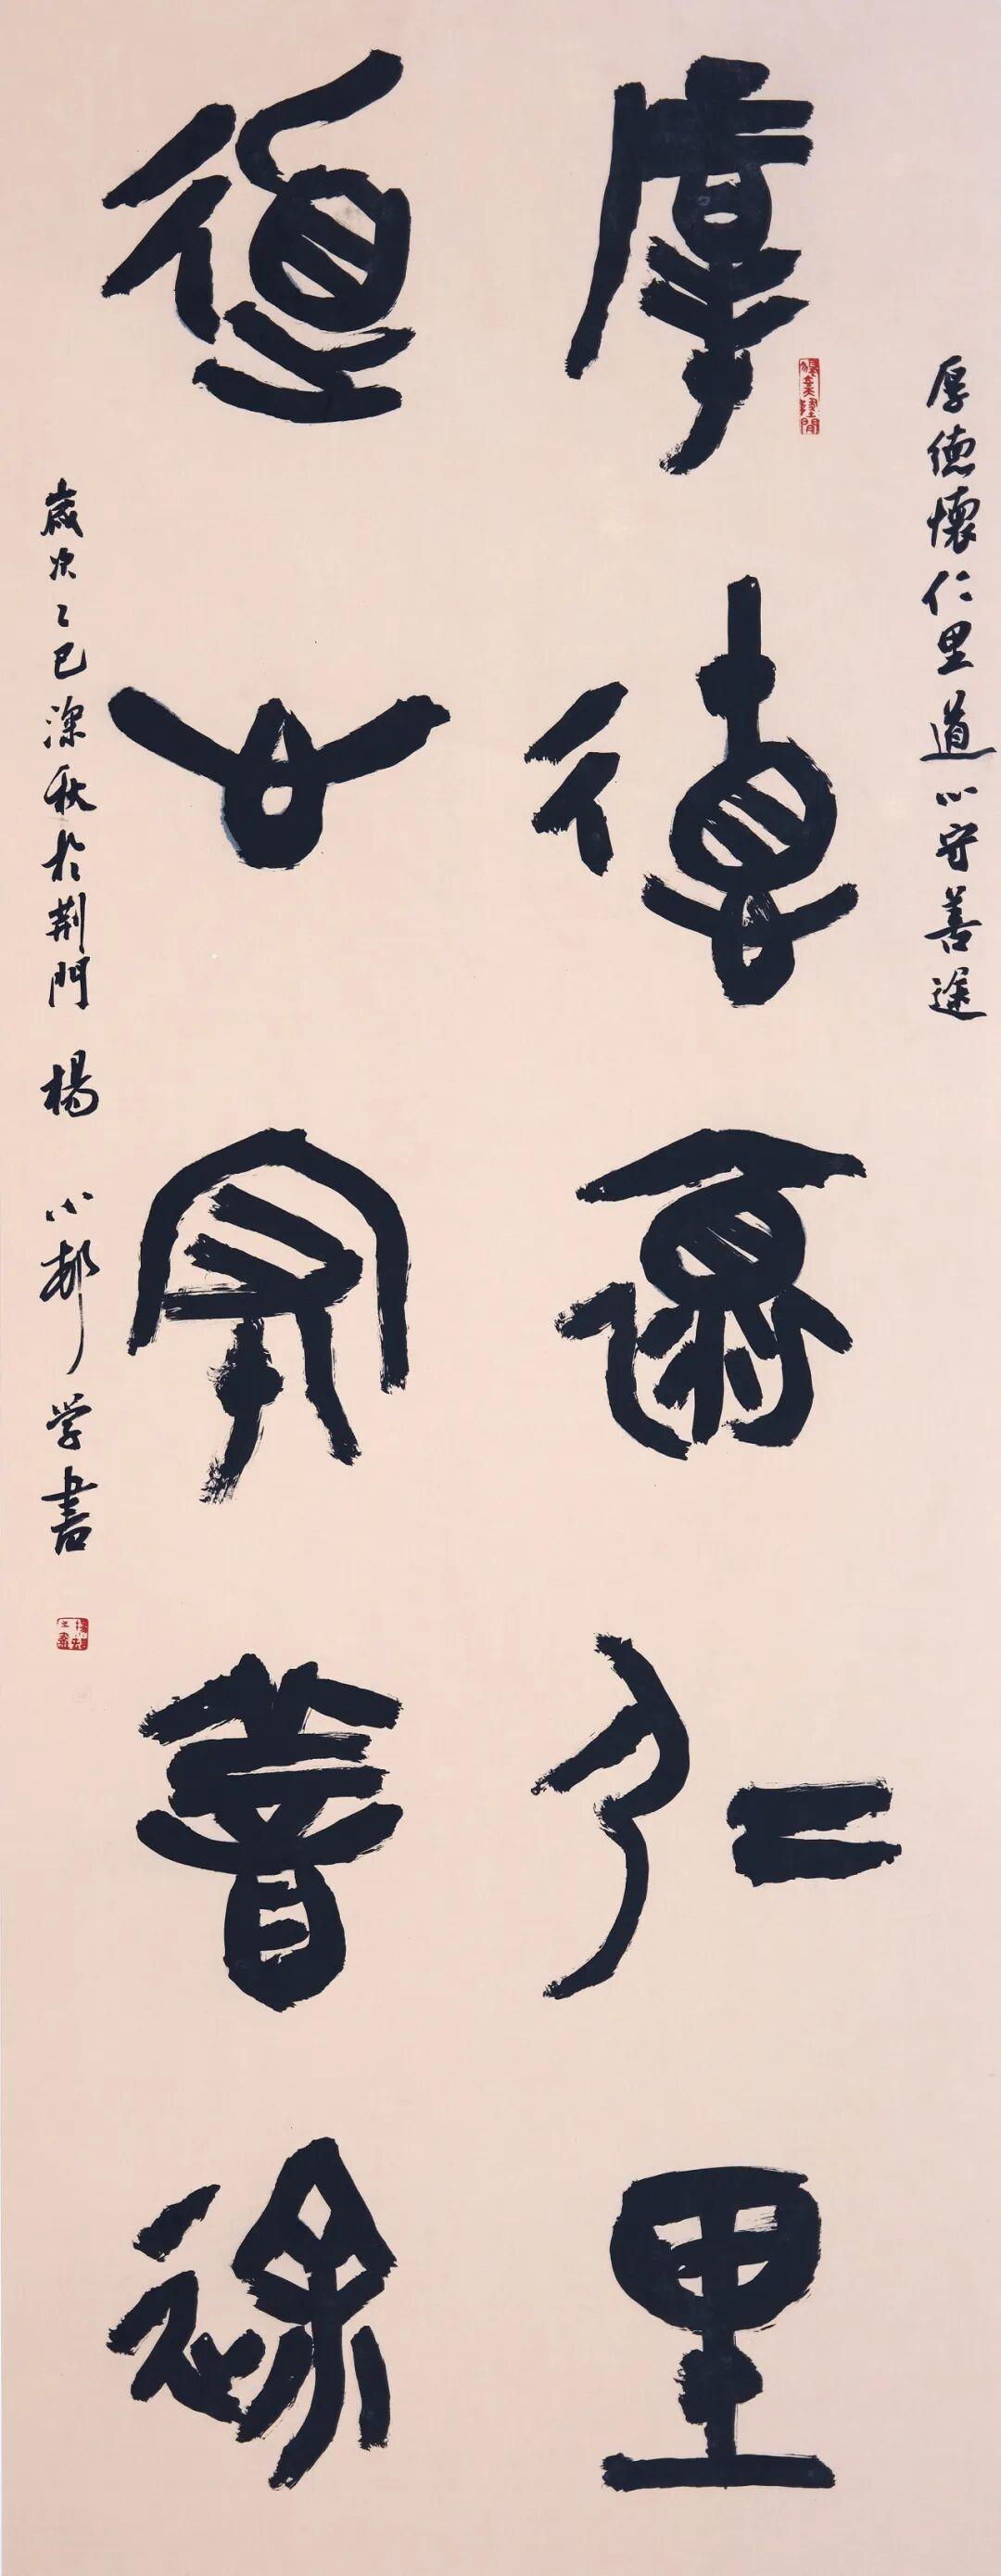 厚德懷仁里道心守善途
厚德懷仁里
道心守善途
歲次乙巳深秋於荊門 楊小 学書